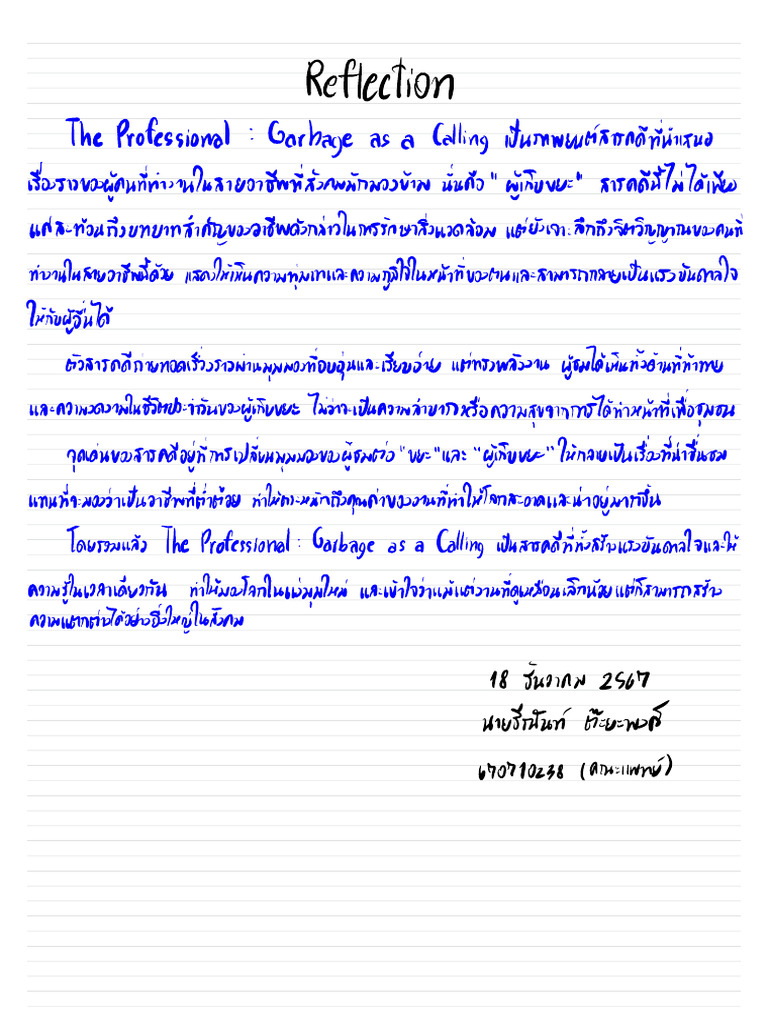 Reflection
The Professional : Garbage as a Calling เป็นภาพยนต์สารคดีที่นำเสนอ
เรื่องราวของผู้คนที่ทำงานในสายอาชีพที่สังคมมักมองข้าม นั่นคือ "ผู้เก็บขยะ" สารคดีนี้ไม่ได้เพียง
แต่สะท้อนถึงบทบาทสำคัญของอาชีพดังกล่าวในการรักษาสิ่งแวดล้อม แต่ยังเจาะลึกถึงจิตวิญญาณของคนที่
ทำงานในสายอาชีพนี้ด้วย แสดงให้เห็นความทุ่มเทและความภูมิใจในหน้าที่ของตนและสามารถกลายเป็นแรงบันดาลใจ
ให้กับผู้อื่นได้
ตัวสารคดีถ่ายทอดเรื่องราวผ่านมุมมองที่อบอุ่นและเรียบง่าย แต่ทรงพลังงาน ผู้ชมได้เห็นทั้งด้านที่ท้าทาย
และความงดงามในชีวิตประจำวันของผู้เก็บขยะ ไม่ว่าจะเป็นความลำบากหรือความสุขจากการได้ทำหน้าที่เพื่อชุมชน
จุดเด่นของสารคดีอยู่ที่การเปลี่ยนมุมมองของผู้ชมต่อ "ขยะ" และ "ผู้เก็บขยะ" ให้กลายเป็นเรื่องที่น่าชื่นชม
แทนที่จะมองว่าเป็นอาชีพที่ต่ำต้อย ทำให้ตระหนักถึงคุณค่าของงานที่ทำให้โลกสะอาดและน่าอยู่มากขึ้น
โดยรวมแล้ว The Professional : Garbage as a Calling เป็นสารคดีที่ทั้งสร้างแรงบันดาลใจและให้
ความรู้ในเวลาเดียวกัน ทำให้มองโลกในแง่มุมใหม่ และเข้าใจว่าแม้แต่งานที่ดูเหมือนเล็กน้อยแต่ก็สามารถสร้าง
ความแตกต่างได้อย่างยิ่งใหญ่ในสังคม
18 ธันวาคม 2567
นายธีรนันท์ ต๊ะยะพงศ์
670710238 (คณะแพทย์)